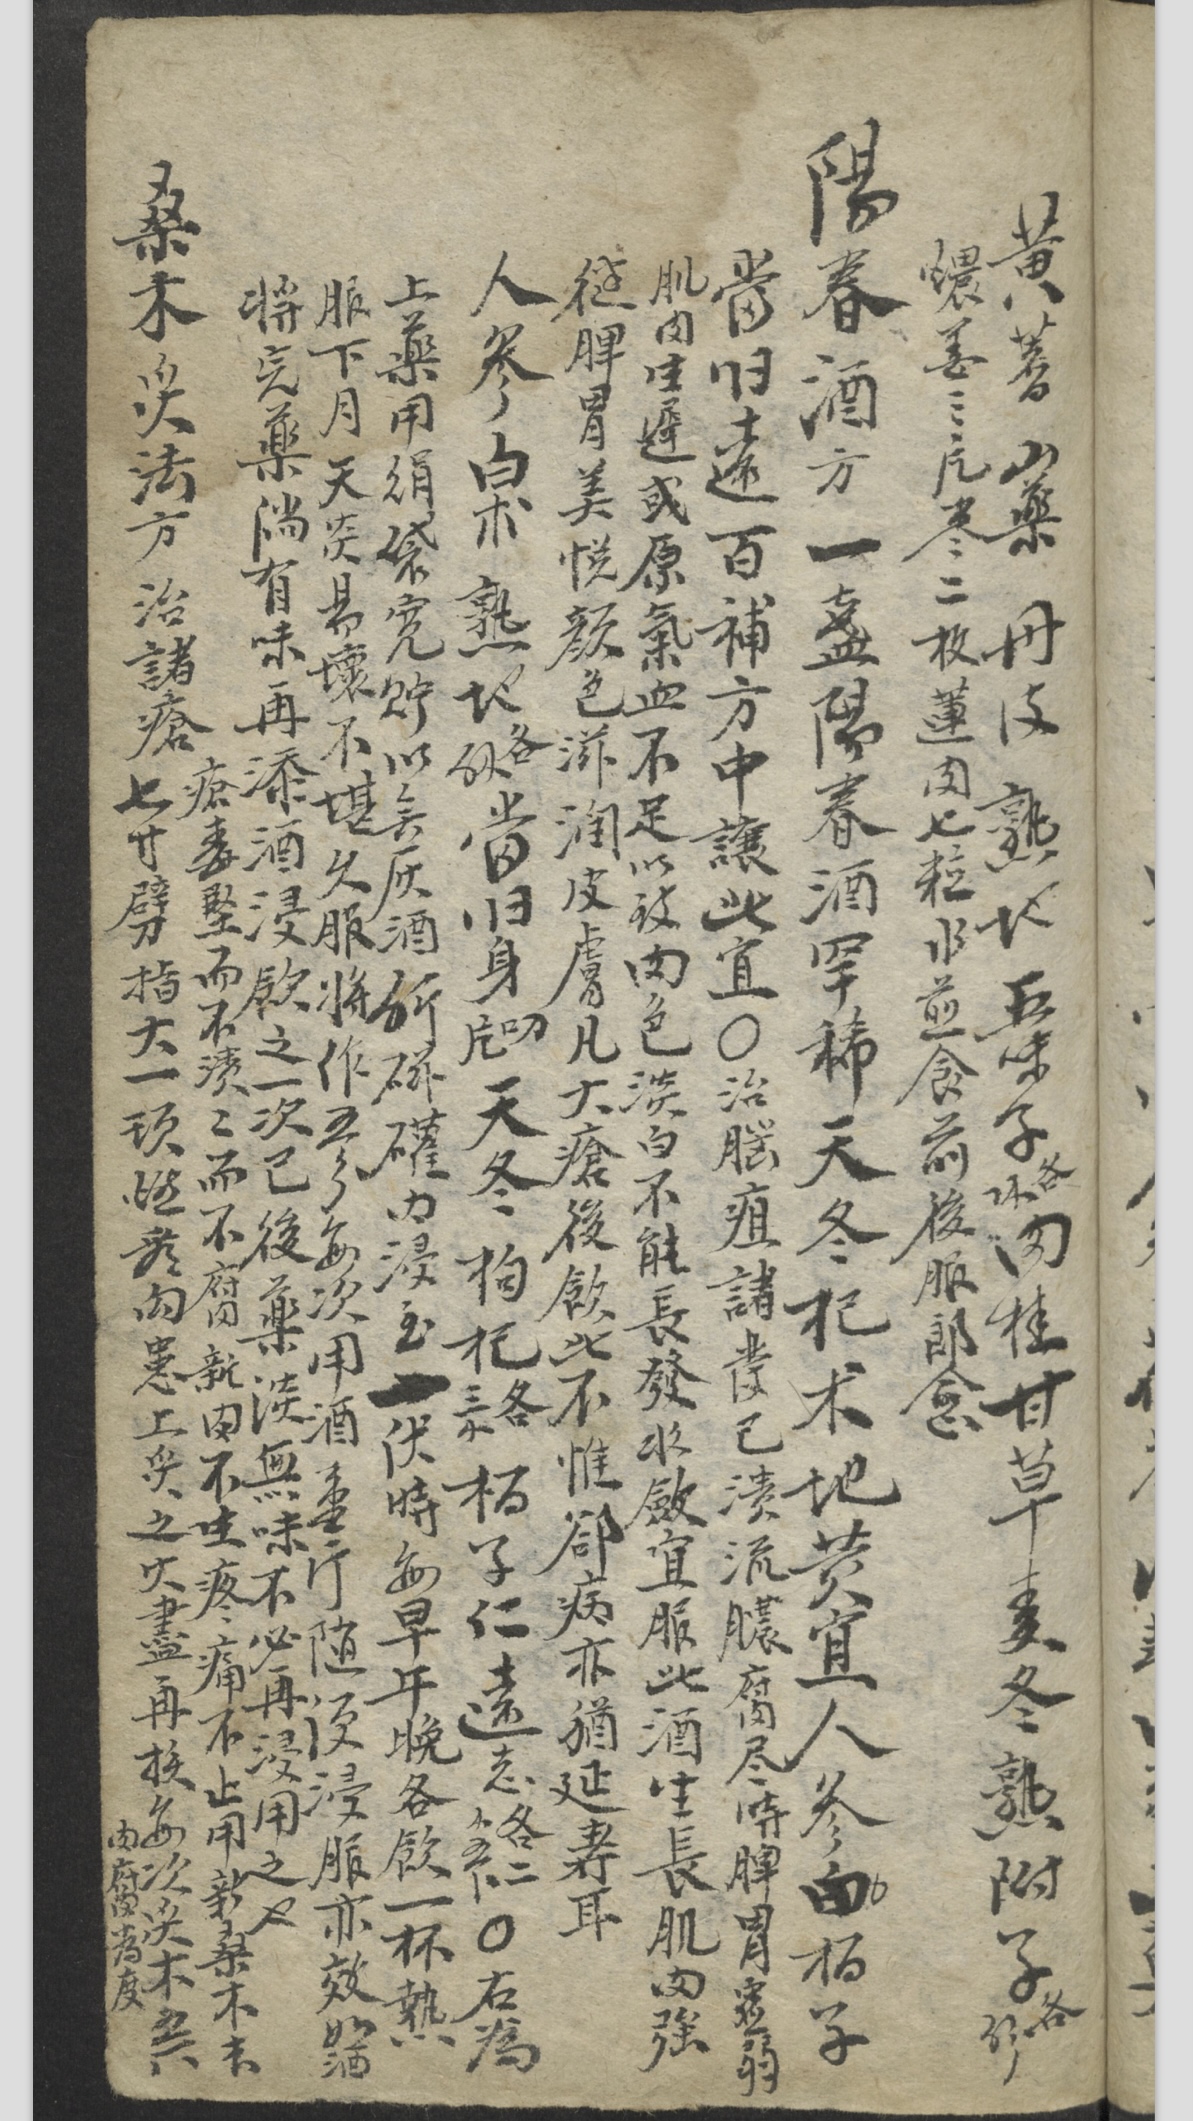 黄蓍 山藥 丹皮 熟地 五味子各 肉桂 甘草 麦冬 熟附子各
煨姜三片枣二枚蓮肉七粒水煎食前後服
陽春酒方 一盞陽春酒罕稀天冬杞术地黄宜人參白柏子
當归遠百補方中讓此宜〇治腦疽諸發已潰流膿腐尽時脾胃虚弱
肌肉生遲或原氣血不足以致肉色淡白不能長發收斂宜服此酒生長肌肉強
徤脾胃美悦顔色滋润皮膚凡大瘡後飲此不惟郤病亦猶延寿耳
人參 白术 熟地各 當归身 切片 天冬 枸杞各三戋 柏子仁 遠志各二戋五卜〇右為
上藥用絹袋宽贮以無灰酒 磁礶内浸至一伏時每早午晚各飲一杯熱
服下月天炎易壞不堪久服将作五分每次用酒壹斤随便浸服亦效如酒
将完藥淌有味再添酒浸飲之一次已後藥淡無味不必再浸用之
桑木炙法方 治諸瘡 瘡毒堅而不潰〻而不腐新肉不生疼痛不止用新桑木
七寸劈指大一頭燃着向患上炙之火盡再换每次炙木五六
肉腐為度